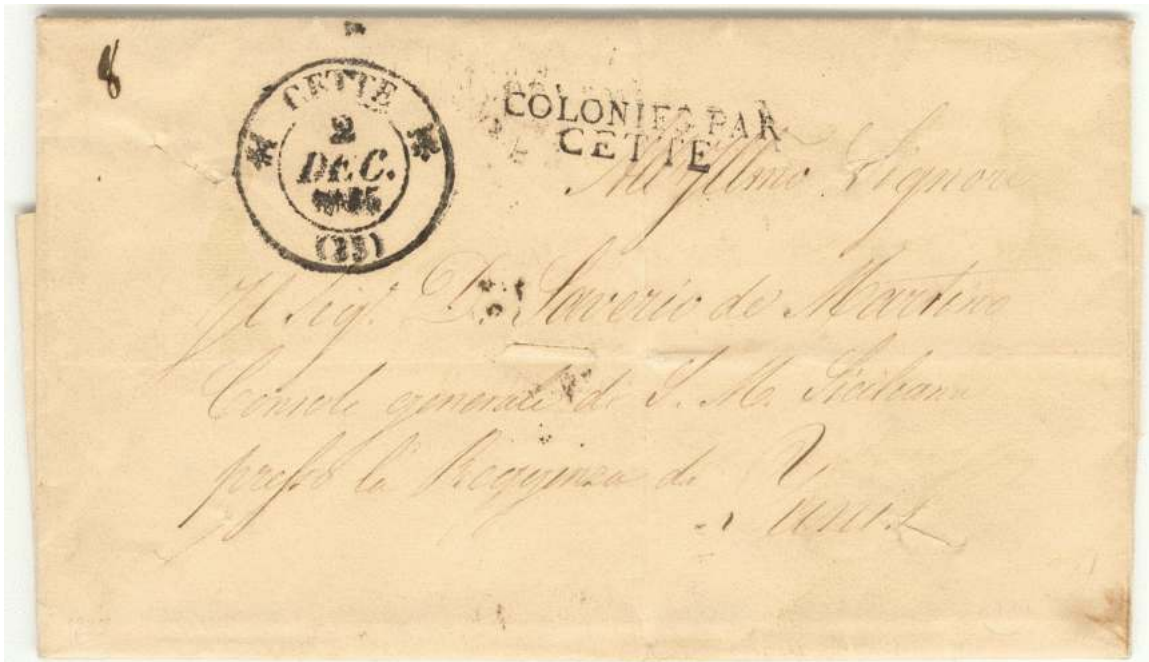 8
CETTE
2
DEC.
(33)
COLONIES PAR
CETTE
All'Illmo Signore
Il Sigr. D. Saverio de Martino
Console generale di S. M. Siciliana
presso la Reggenza di
Tunis